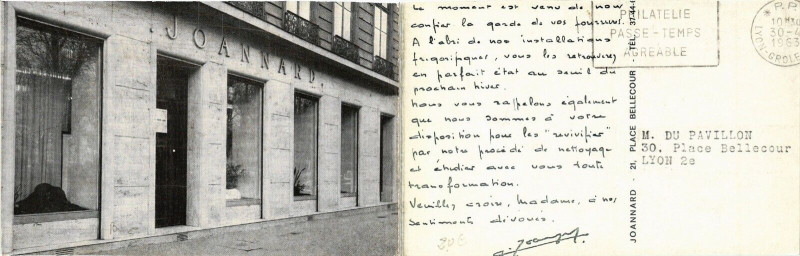 JOANNARD
Le moment est venu de nous
confier la garde de vos fourrures.
A l'abri de nos installations
frigorifiques, vous les retrouverez
en parfait état au seuil du
prochain hiver.
Nous vous rappelons également
que nous sommes à votre
disposition pour les "revivifier"
par notre procédé de nettoyage
et étudier avec vous toute
transformation.
Veuillez croire, Madame, à nos
sentiments dévoués.
J. Joannard
30E
JOANNARD - 21, PLACE BELLECOUR - TÉL. 37-44-
PHILATELIE
PASSE-TEMPS
AGREABLE
P.P.
30-4
1963
LYON-GROLEE
M. DU PAVILLON
30, Place Bellecour
LYON 2e